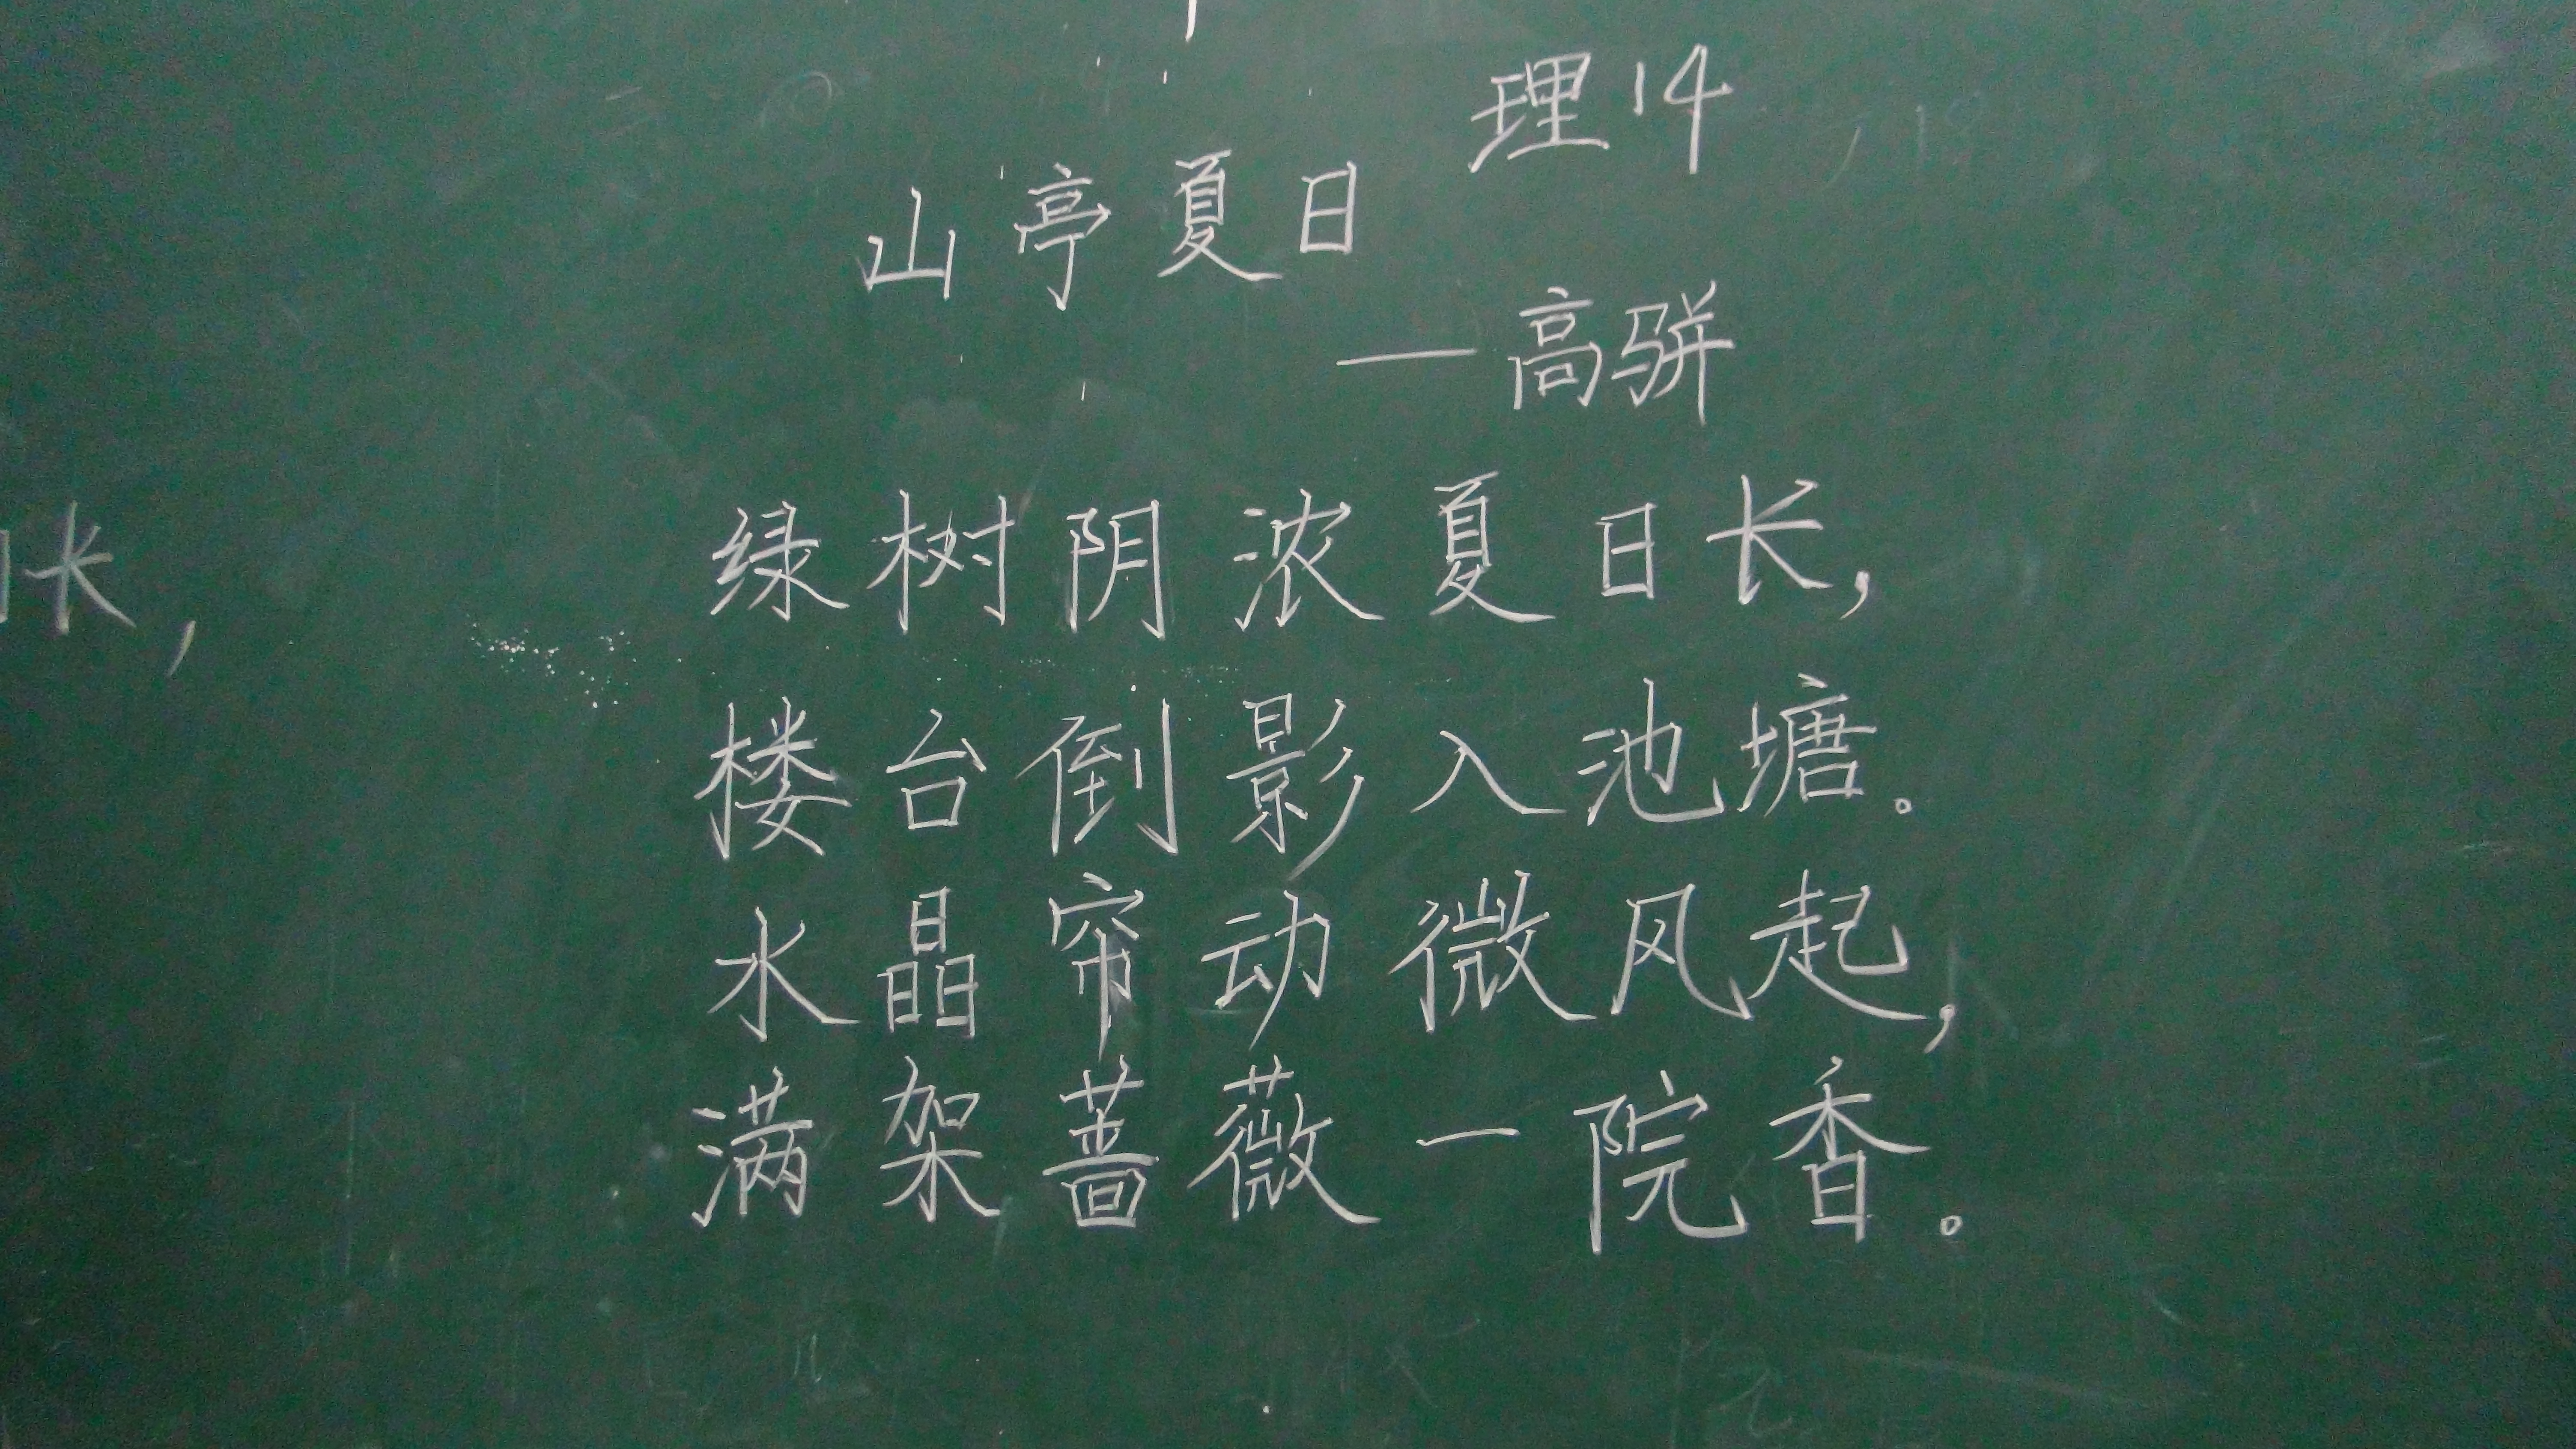 理14
山亭夏日
—高骈
绿树阴浓夏日长,
楼台倒影入池塘。
水晶帘动微风起,
满架蔷薇一院香。
长,